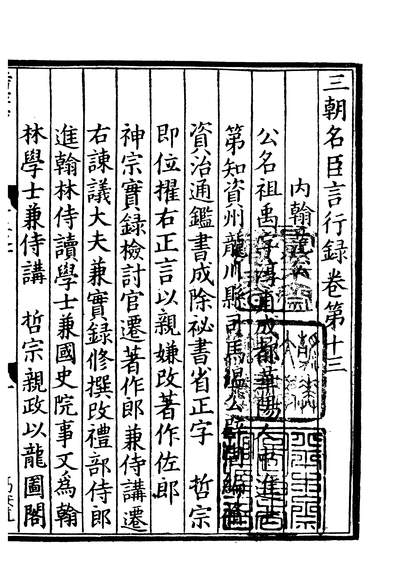 三朝名臣言行録卷第十三
内翰范公
公名祖禹字淳甫成都華陽人中進士
第知資州龍水縣司馬溫公辟同編脩
資治通鑑書成除祕書省正字 哲宗
即位擢右正言以親嫌改著作佐郎
神宗實録檢討官遷著作郎兼侍講遷
右諫議大夫兼實録修撰改禮部侍郎
進翰林侍讀學士兼國史院事又為翰
林學士兼侍講 哲宗親政以龍圖閣